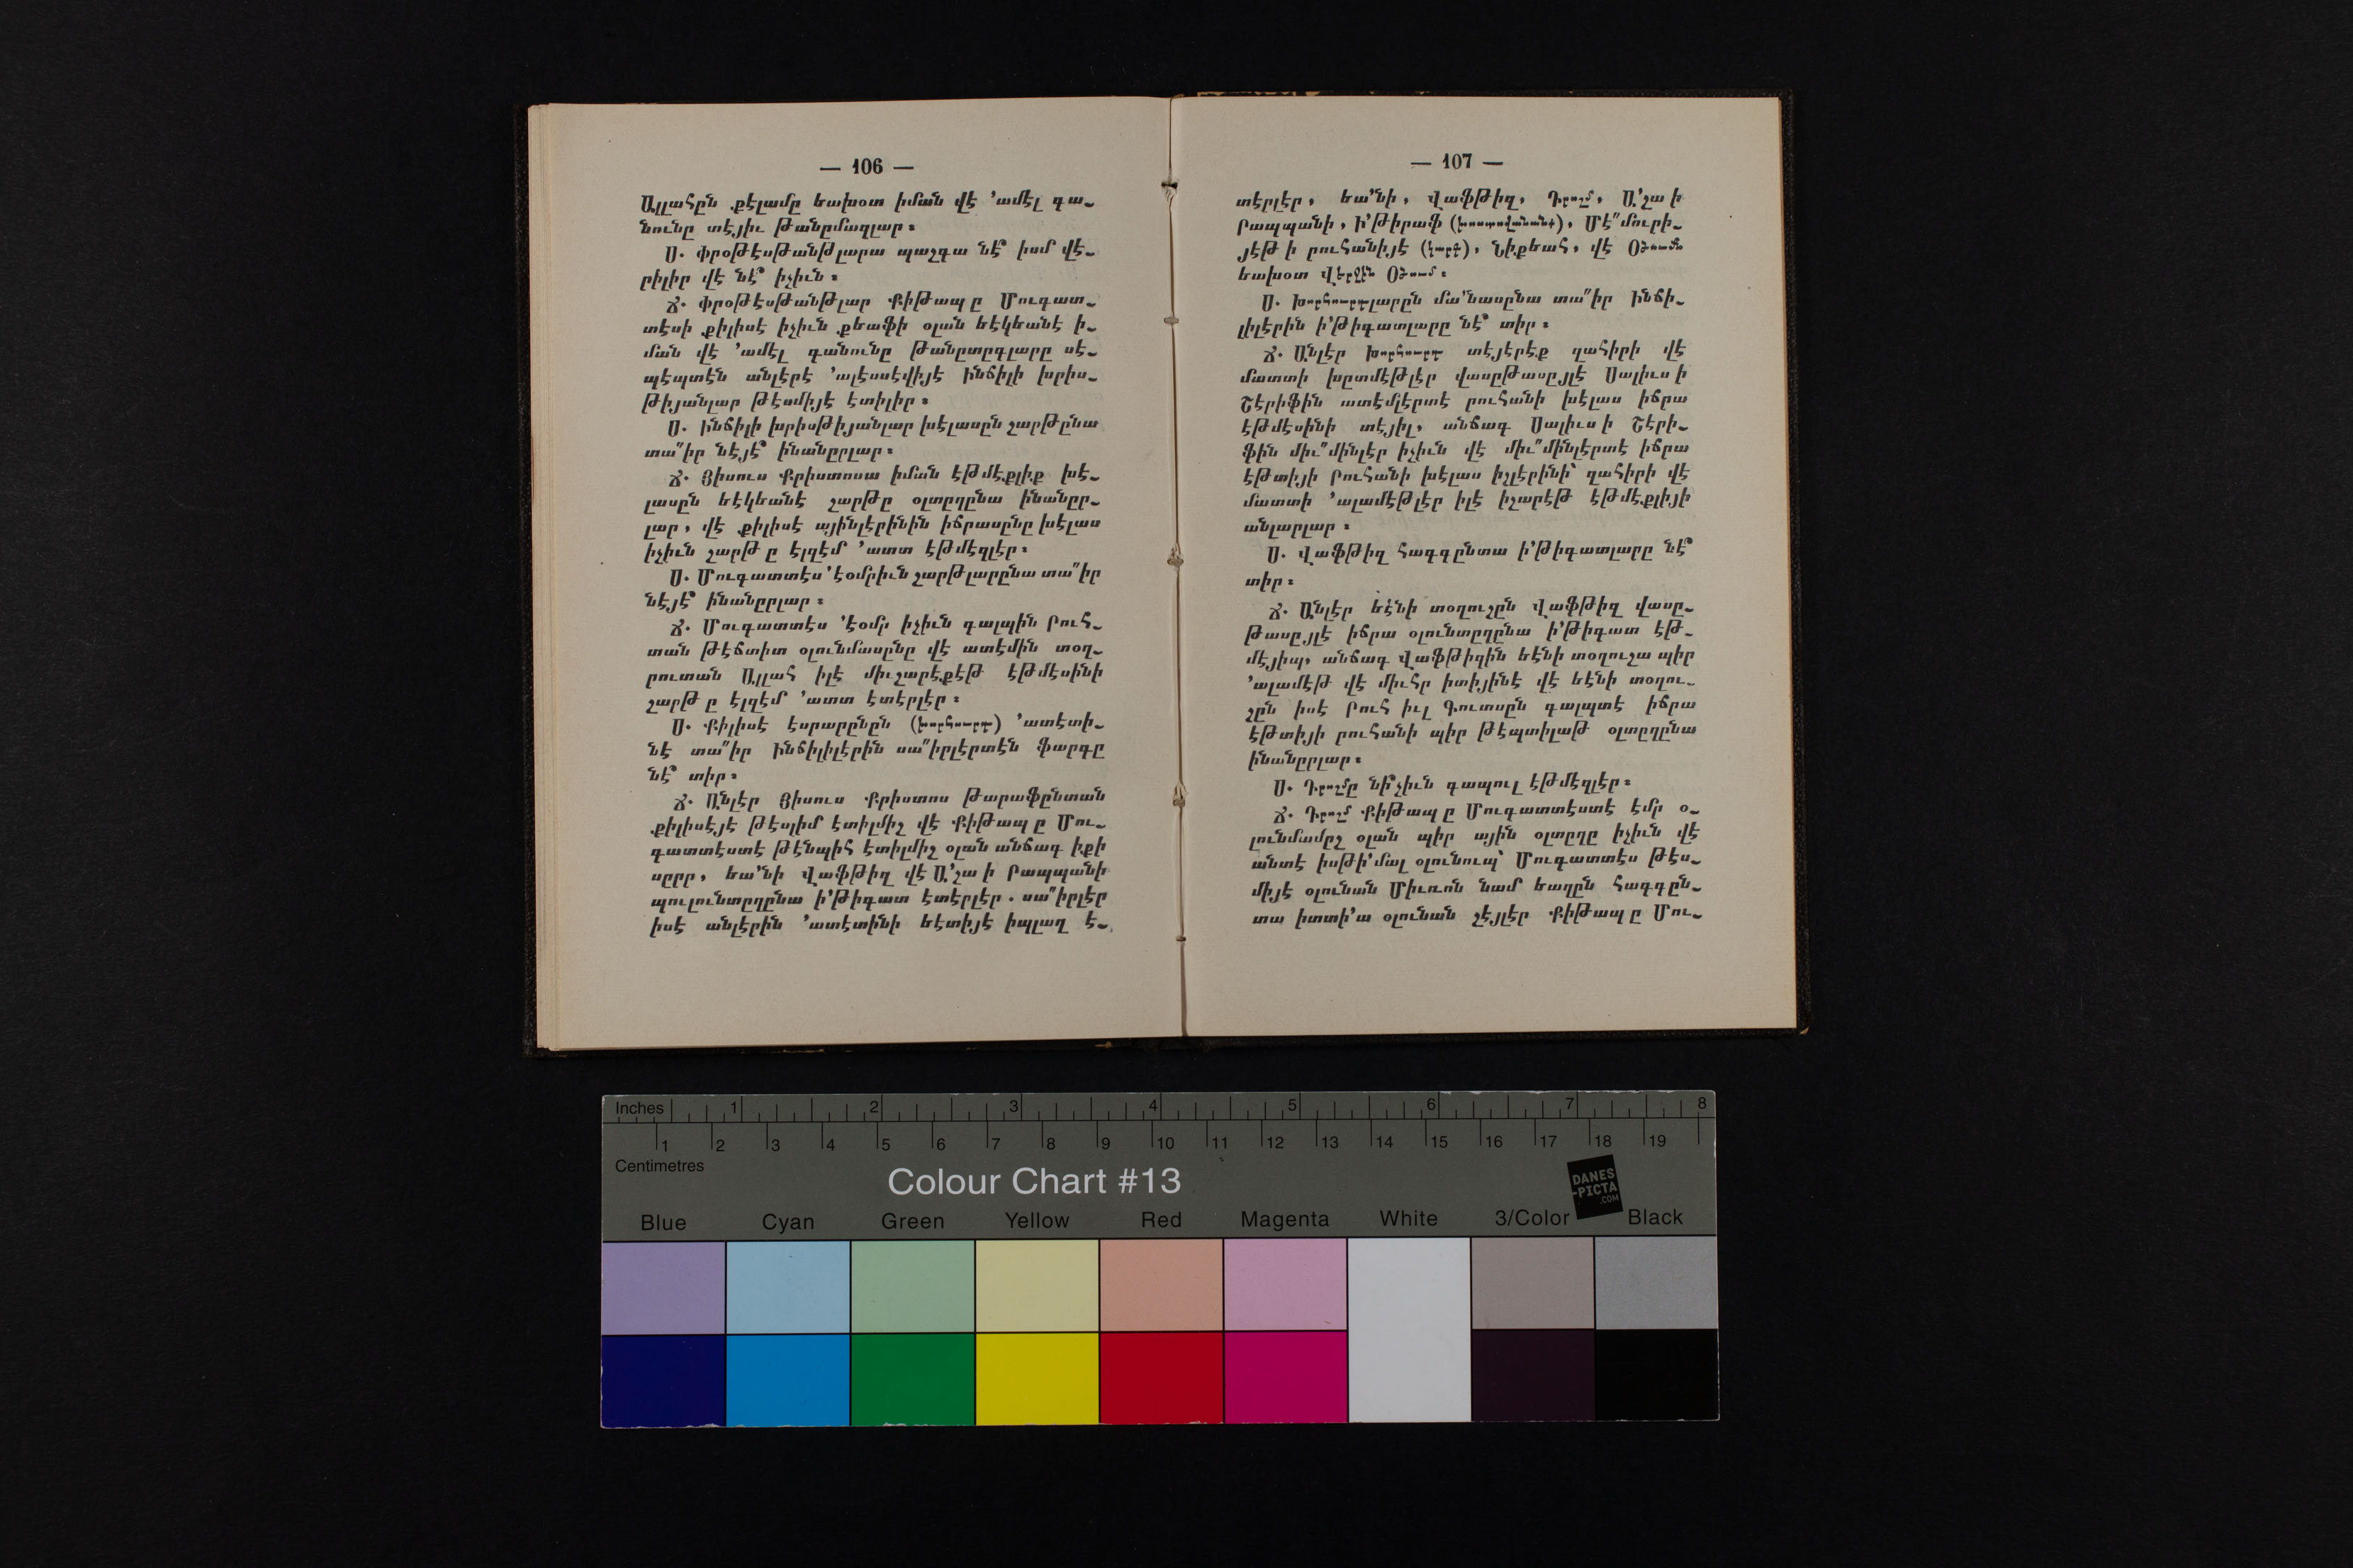 — 106 —
Ալլահըն քէլամը եախօտ իման վէ ՚ամէլ գա֊
նունը տէյիւ թանըմազլար ։
Ս. Փրօթէսթանթլարա պաշգա նէ՞ իսմ վէ֊
րիլիր վէ նէ՞ իչիւն ։
Ճ. Փրօթէսթանթլար Քիթապ ը Մուգատ֊
տէսի քիլիսէ իչիւն քեաֆի օլան եէկեանէ ի֊
ման վէ ՚ամէլ գանունը թանըտըգլարը սէ֊
պէպտէն անլէրէ ՚ալէսսէվիյէ Ինճիլի խրիս֊
թիյանլար թէսմիյէ էտիլիր ։
Ս. Ինճիլի խրիսթիյանլար խէլասըն շարթընա
տա՛՛իր նէյէ՞ ինանըրլար ։
Ճ. Յիսուս Քրիստոսա իման էթմէքլիք խէ֊
լասըն եէկեանէ շարթը օլտըղընա ինանըր֊
լար, վէ քիլիսէ այինլէրինին իճրասընը խէլաս
իչիւն շարթ ը էլզէմ ՚ատտ էթմէզլէր ։
Ս. Մուգատտէս ՚էօմրիւն շարթլարընա տա՛՛իր
նէյէ՞ ինանըրլար ։
Ճ. Մուգատտէս ՚էօմր իչիւն գալպին Րուհ֊
տան թէճտիտ օլունմասընը վէ ատէմին տօղ֊
րուտան Ալլահ իլէ միւշարէքէթ էթմէսինի
շարթ ը էլզէմ ՚ատտ էտէրլէր ։
Ս. Քիլիսէ էսրարընըն (խորհուրդ) ՚ատէտի֊
նէ տա՛՛իր Ինճիլիլէրին սա՛՛իրլէրտէն ֆարգը
նէ՞ տիր ։
Ճ. Անլէր Յիսուս Քրիստոս թարաֆընտան
քիլիսէյէ թէսլիմ էտիլմիշ վէ Քիթապ ը Մու֊
գատտէստէ թէնպիհ էտիլմիշ օլան անճագ իքի
սըրր, եա՛նի Վաֆթիզ վէ Ա՛շա ի Րապպանի
պուլունտըղընա ի՛թիգատ էտէրլէր . սա՛՛իրլէր
իսէ անլէրին ՚ատէտինի եէտիյէ իպլաղ է֊
— 107 —
տէրլէր, եա՛նի, Վաֆթիզ, Դրոշմ, Ա՛շա ի
Րապպանի, Ի՛թիրաֆ (խոստովանանք), Մէ՛՛մուրի֊
յէթ ի րուհանիյէ (կարգ), Նիքեահ, վէ Օծումն
եախօտ Վերջին Օծում ։
Ս. Խորհուրդլարըն մա՛նասընա տա՛՛իր Ինճի֊
լիլէրին ի՛թիգատլարը նէ՞ տիր ։
Ճ. Անլէր Խորհուրդ տէյէրէք զահիրի վէ
մատտի խըտմէթլէր վասըթասըյլէ Սալիւս ի
Շէրիֆին ատէմլէրտէ րուհանի խէլաս իճրա
էթմէսինի տէյիլ, անճագ Սալիւս ի Շէրի֊
ֆին միւ՛՛մինլէր իչիւն վէ միւ՛՛մինլէրտէ իճրա
էթտիյի Րուհանի խէլաս իշլէրինի՝ զահիրի վէ
մատտի ՚ալամէթլէր իլէ իշարէթ էթմէքլիյի
անլարլար ։
Ս. Վաֆթիզ հագգընտա ի՛թիգատլարը նէ՞
տիր ։
Ճ. Անլէր եէնի տօղուշըն Վաֆթիզ վասը֊
թասըյլէ իճրա օլունտըղընա ի՛թիգատ էթ֊
մէյիպ, անճագ Վաֆթիզին եէնի տօղուշա պիր
՚ալամէթ վէ միւհր իտիյինէ վէ եէնի տօղու֊
շըն իսէ Րուհ իւլ Գուտսըն գալպտէ իճրա
էթտիյի րուհանի պիր թէպտիլաթ օլտըղընա
ինանըրլար ։
Ս. Դրոշմը նի՞չիւն գապուլ էթմէզլէր ։
Ճ. Դրոշմ Քիթապ ը Մուգատտէստէ էմր օ֊
լունմամըշ օլան պիր ային օլտըղը իչիւն վէ
անտէ իսթի՛մալ օլունուպ՝ Մուգատտէս թէս֊
միյէ օլունան Միւռոն նամ եաղըն հագգըն֊
տա իտտի՛ա օլունան շէյլէր Քիթապ ը Մու֊
Inches 1 2 3 4 5 6 7 8
1 2 3 4 5 6 7 8 9 10 11 12 13 14 15 16 17 18 19
Centimetres
Colour Chart #13
DANES
-PICTA
.COM
Blue Cyan Green Yellow Red Magenta White 3/Color Black